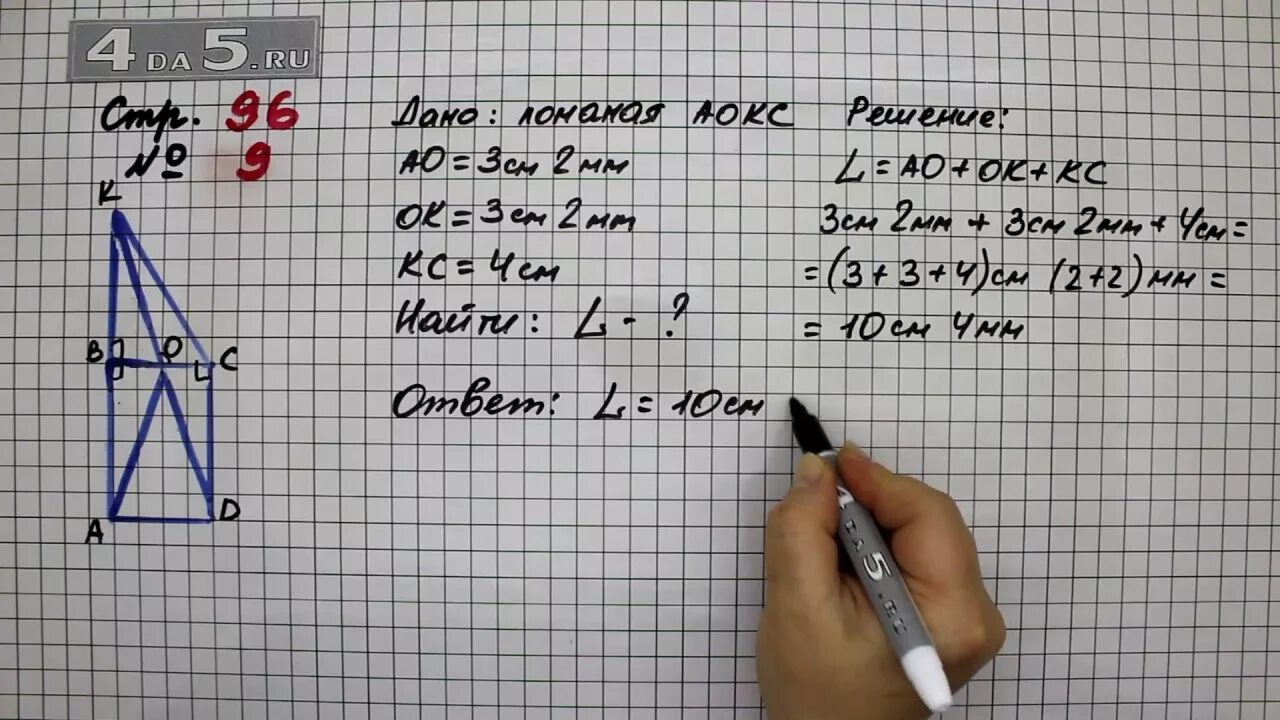 4DA5.RU
Стр. 96
№ 9
Дано: ломаная АОКС
АО = 3см 2мм
ОК = 3см 2мм
КС = 4см
Найти: L - ?
Ответ: L = 10см
Решение:
L = АО + ОК + КС
3см 2мм + 3см 2мм + 4см =
= (3 + 3 + 4)см (2+2)мм =
= 10см 4мм
K
B O C
A D
4DA5.RU